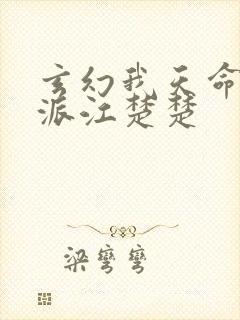 玄幻我天命
派江楚楚
梁弯弯